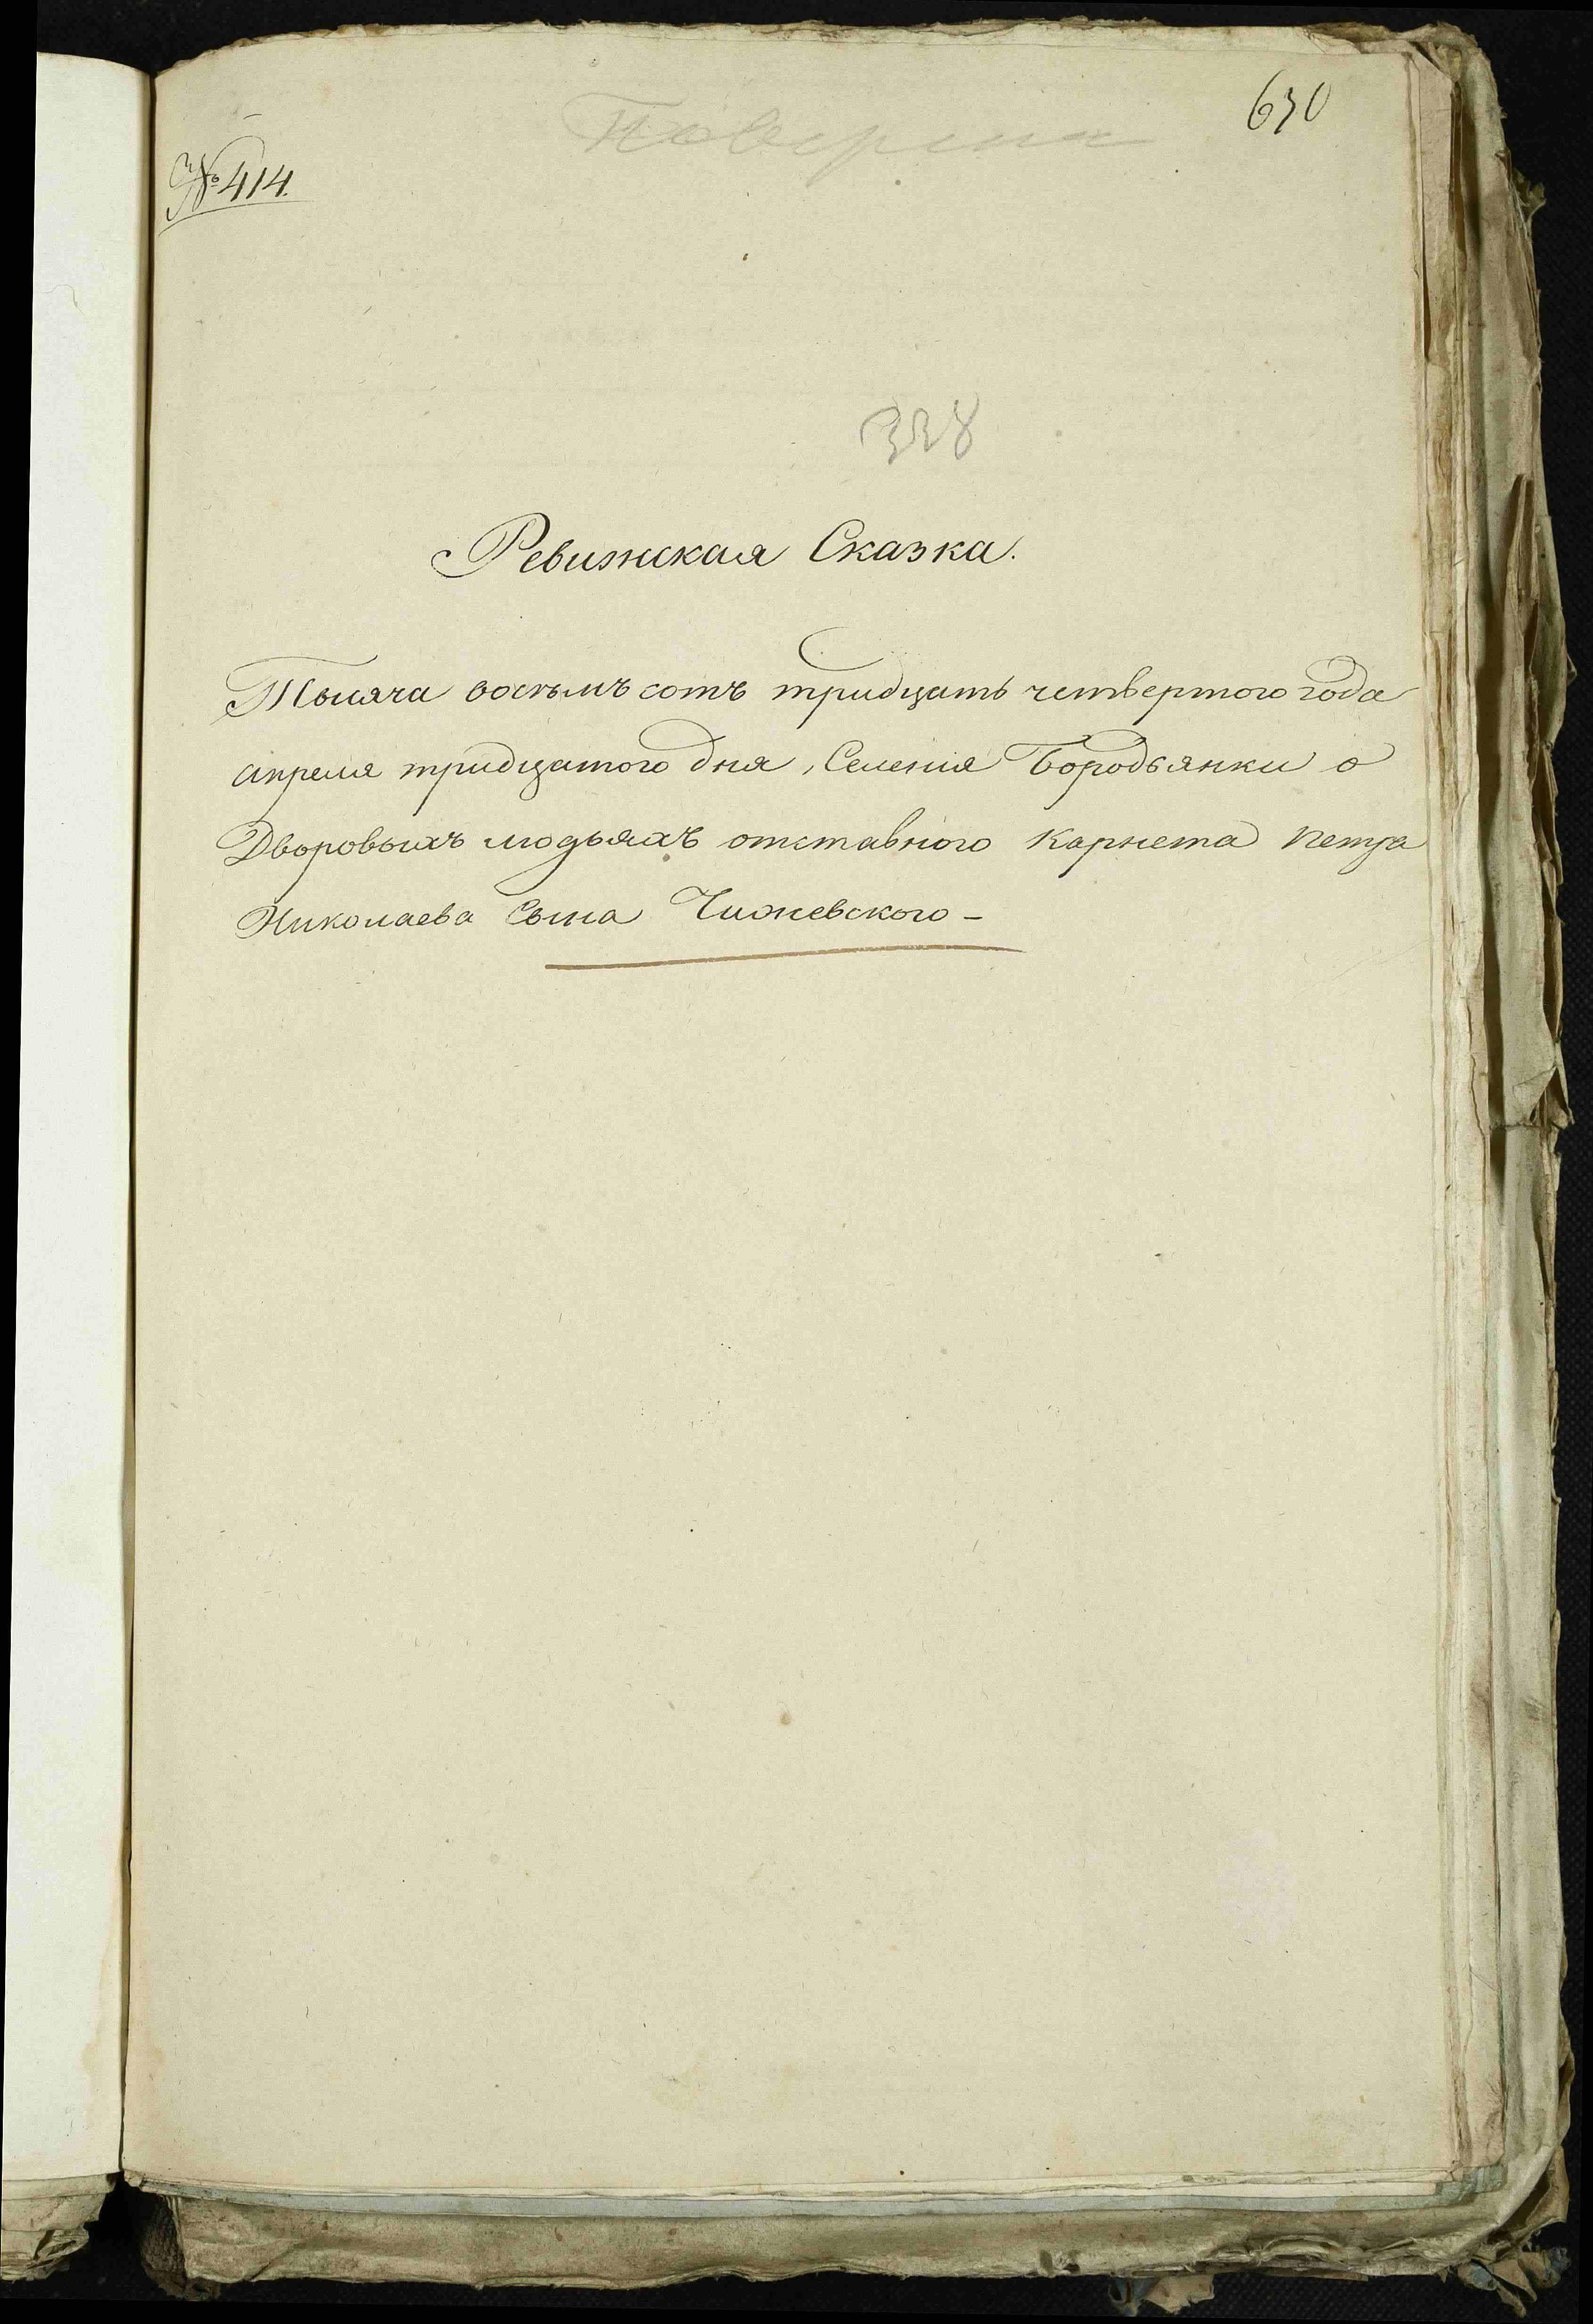 630
№ 414.
338
Ревижская Сказка.
Тысяча восъмъ сотъ тридцать четвертого года
апреля тридцатого дня, Селения Бородьянки о
Дворовыхъ людьяхъ отставного Карнета Петра
Николаева Сына Чижевского -